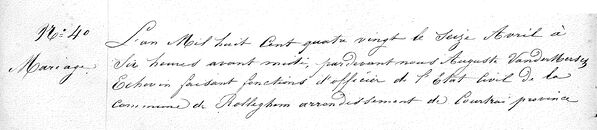 N.° 4°
Mariage.
L'an Mil huit Cent quatre vingt le Seize Avril à
Six heures avant midi, pardevant nous Auguste VanderMersch
Echevin faisant fonctions d'officier de l'Etat Civil de la
commune de Rolleghem arrondissement de Courtrai province